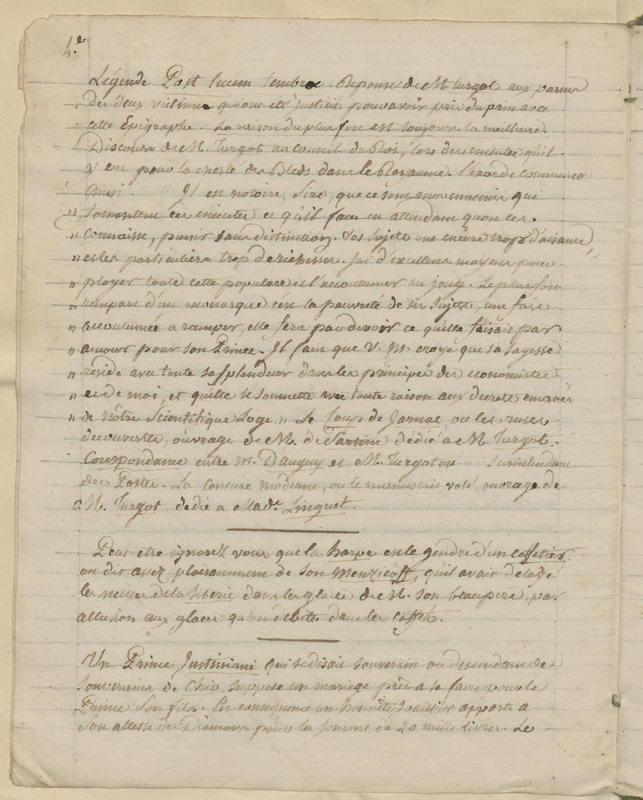 4.e
Légende Post lucem tenebræ. Réponse de M. Turgot aux parens
des deux victimes qui ont été justiciés pour avoir pris du pain avec
cette Epigraphe. La raison du plus fort est toujours la meilleure.
Discours de M. Turgot au Conseil du Roi, lors des émeutes qu'il
y eut pour la cherté des Bleds dans le Royaume. l'exorde commence
ainsi. " Il est notoire, Sire, que ce sont mes ennemis qui
" fomentent ces émeutes et qu'il faut en attendant qu'on les
" connaisse, punir sans distinction. Vos sujets ont encore trop d'aisance,
" et les particuliers trop de richesses. J'ai d'excellens moyens pour
" ployer toute cette populace et l'accoutumer au joug. Le plus fort
" rempart d'un monarque c'est la pauvreté de ses sujets, une fois
" accoutumée a ramper, elle fera par devoir ce qu'elle faisait par
" amour pour son Prince. Il faut que V. M. croye que sa sagesse
" réside avec toute sa splendeur dans les principes des économistes
" et de moi, et qu'elle se soumette avec toute raison aux decrets emanés
" de nôtre Scientifique Loge. " Le Coup de Jarnac, ou les ruses
découvertes, ouvrage de M. de Sartine dédié a M. Turgot.
Corespondance entre M. D'augny et M. Turgot Surintendant
des Postes. La Censure moderne, ou le manuscrit volé, ouvrage de
M. Turgot, dédié a Mad.e Linguet.
Peut etre ignorez vous que la harpe est le gendre d'un Caffetier,
on dit assez plaisamment de son Menzicoff, qu'il avait délayé
les neiges de la Siberie dans les glaces de M. son beaupere, par
allusion aux glaces qu'on débite dans les Caffés.
Un Prince Justiniani qui se disait souverain ou descendant des
Souverains de Chio suppose un mariage prêt a se faire pour le
Prince son fils. En conséquence un honnête bijoutier apporte a
Son altesse des Diamans pour la somme de 20 mille livres. Le